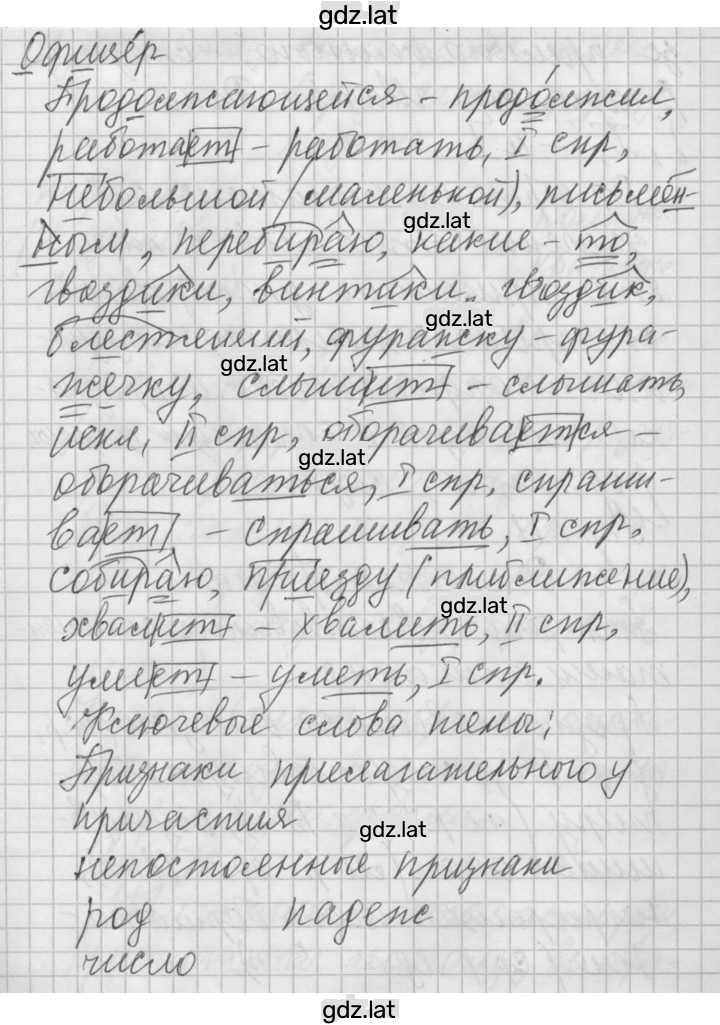 gdz.lat
Офице́р
Продолжающейся – продо́лжил,
работает – работать, I спр,
Небольшой (маленькой), письмен-
gdz.lat
ным, перебираю, какие-то,
гвоздики, винтики, гвоздик,
gdz.lat
блестящий, фуражку – фура-
gdz.lat
жечку, слышит – слышать,
искл, II спр, оборачивается –
gdz.lat
оборачиваться, I спр, спраши-
вает – спрашивать, I спр,
собираю, приезду (приближение),
gdz.lat
хвалит – хвалить, II спр,
умеет – уметь, I спр.
Ключевые слова темы:
Признаки прилагательного у
причастия
gdz.lat
непостоянные признаки
род падеж
число
gdz.lat